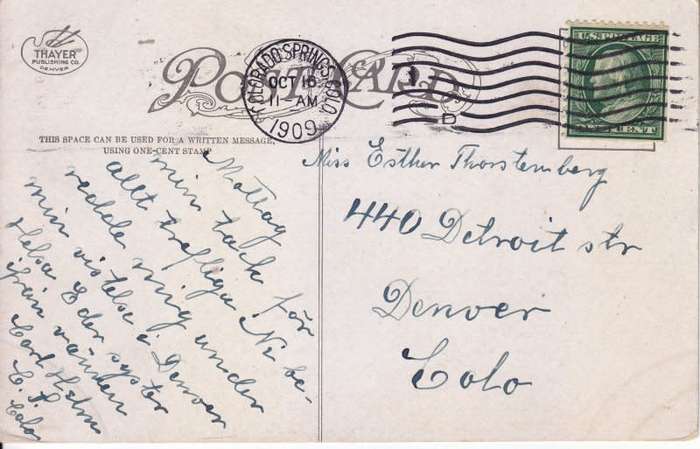 THAYER
PUBLISHING CO.
DENVER
POST CARD
COLORADO SPRINGS, COLO.
OCT 16
11 AM
1909
U.S. POSTAGE
THIS SPACE CAN BE USED FOR A WRITTEN MESSAGE,
USING ONE-CENT STAMP
Mottag
min tack för
allt trefliga Ni be-
redde mig under
min vistelse i Denver
Helsa Eder syster
från vännen
Carl Holm
C. S. Colo
Miss Esther Thorstenberg
440 Detroit str
Denver
Colo